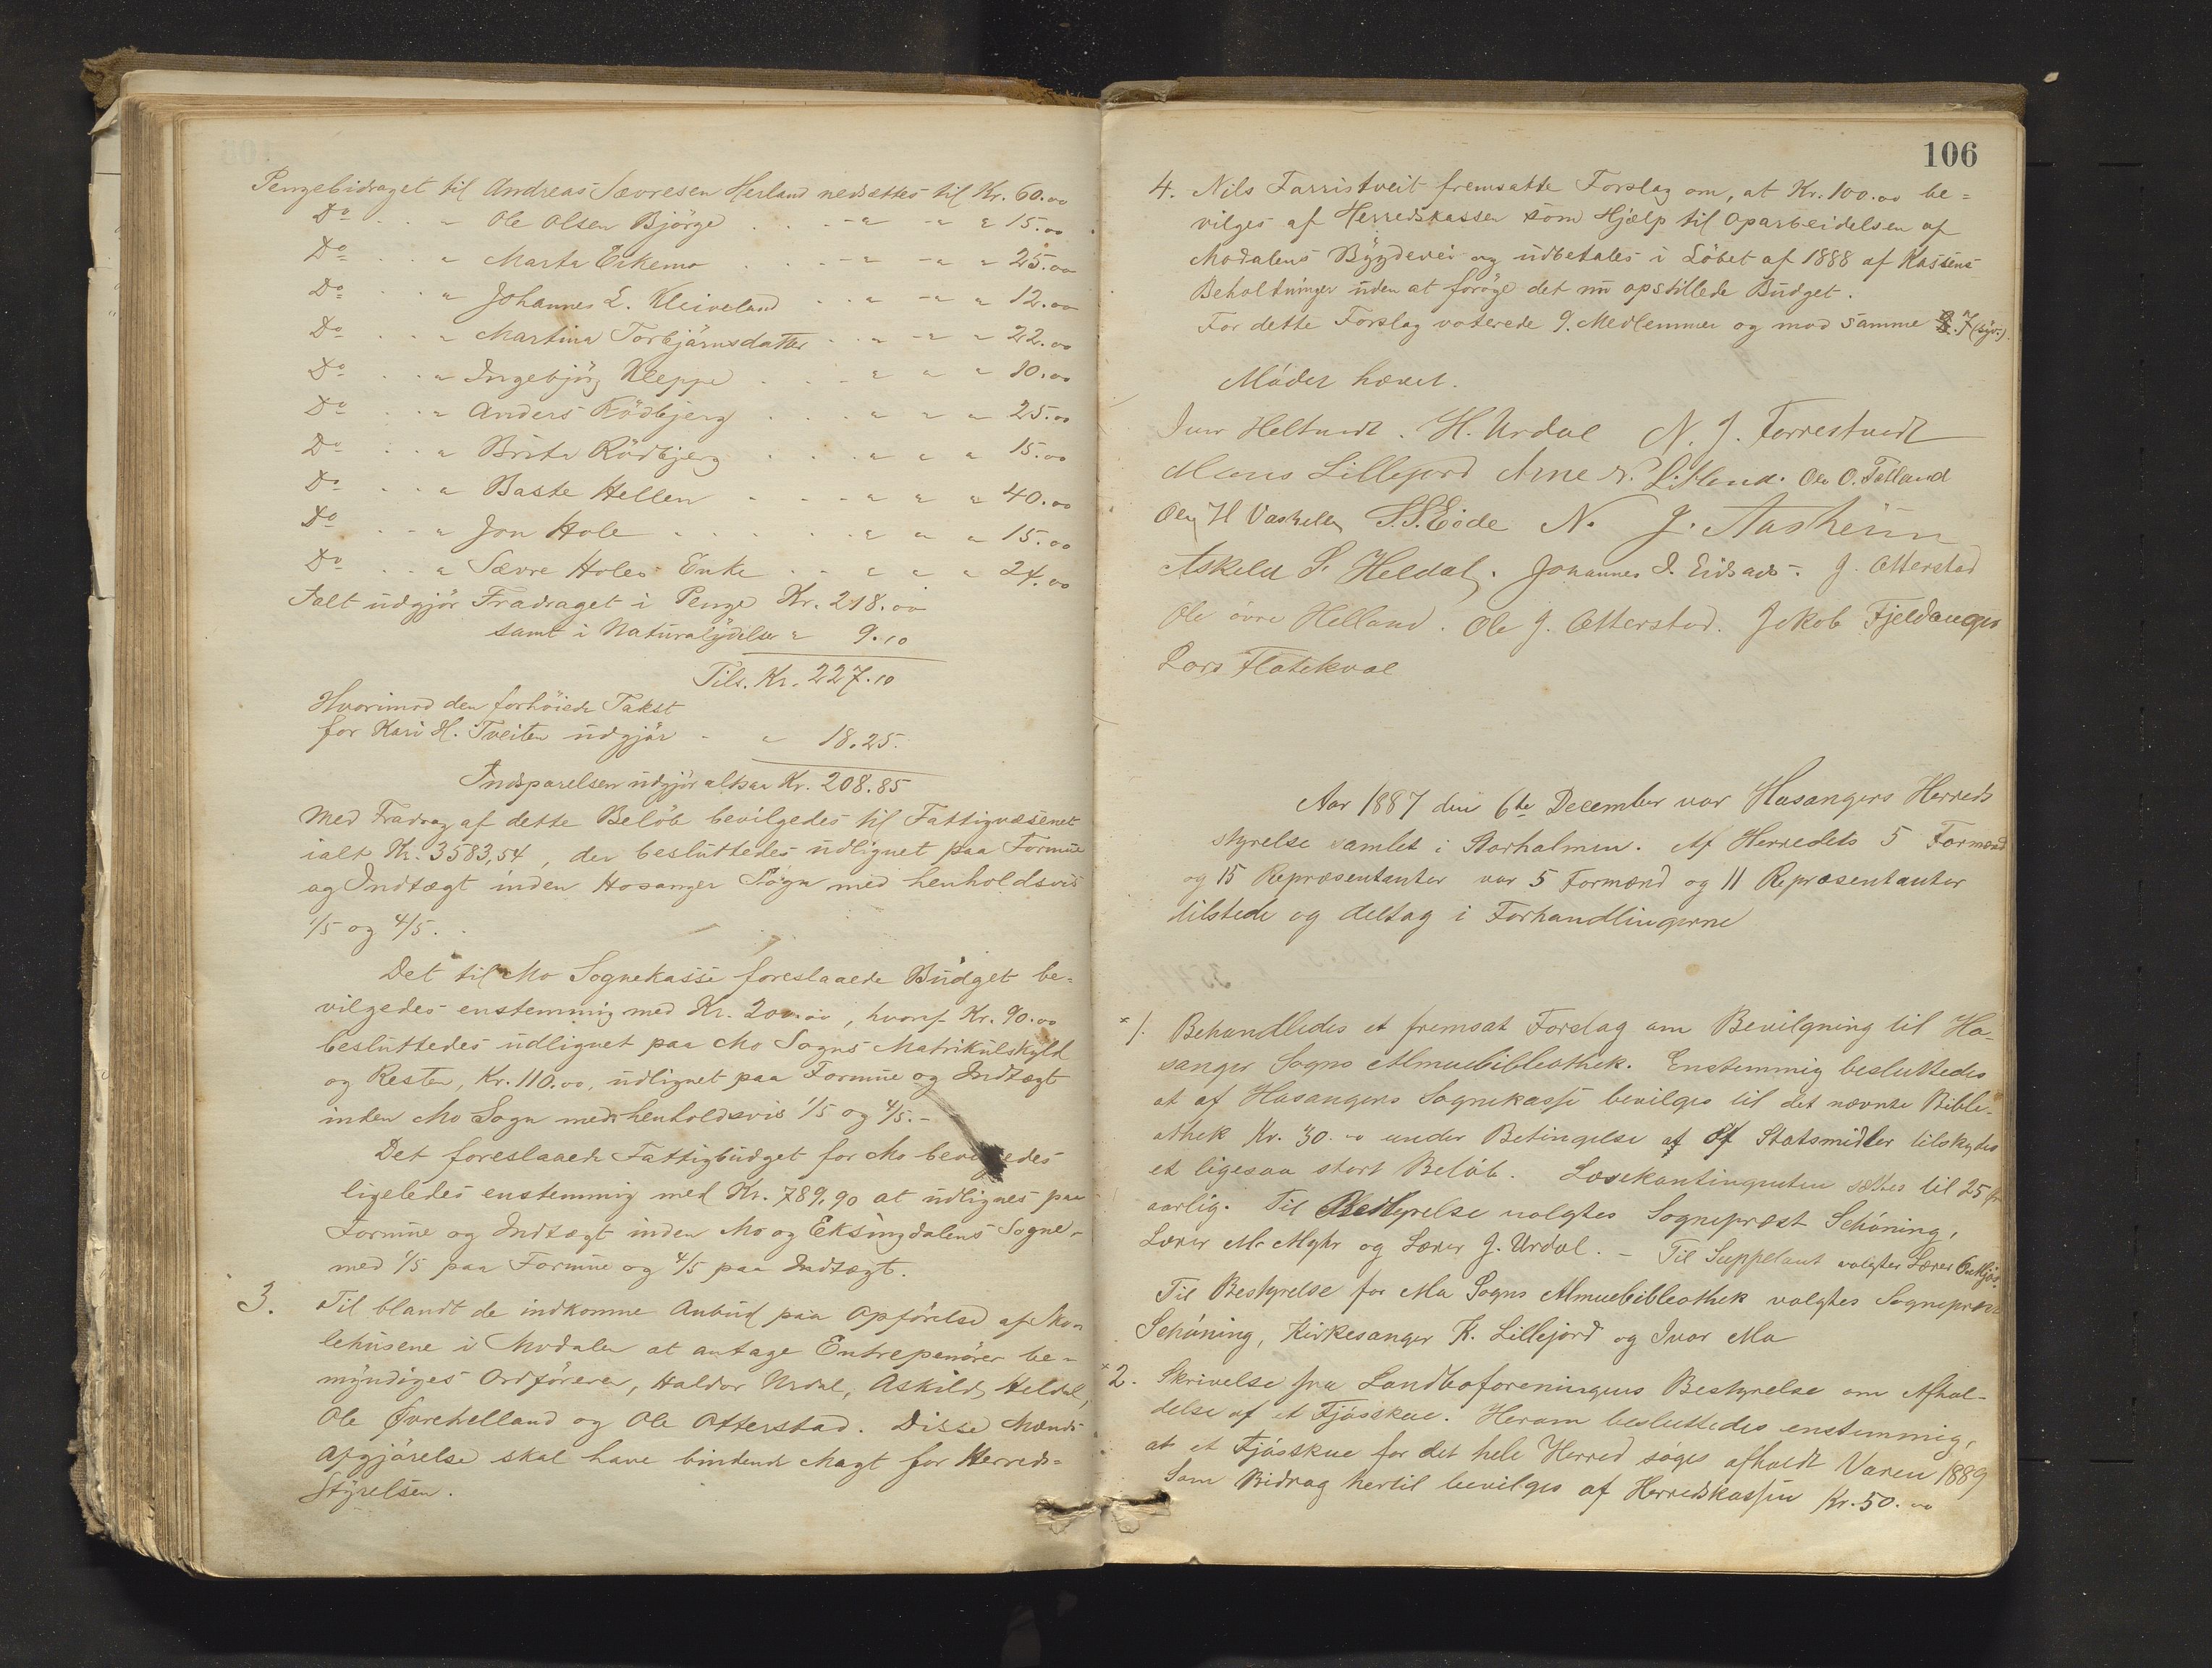 Pengebidraget til Andreas Sævresen Herland nedsættes til Kr. 60.00
Do . . " Ole Olsen Bjørge . . . " " " 15.00
Do . . " Marta Eikemo . . . " " " 25.00
Do . . " Johannes L. Kleiveland . . " " " 12.00
Do . . " Martina Torbjørnsdatter . . " " " 22.00
Do . . " Ingebjørg Kleppe . . . " " " 10.00
Do . . " Anders Rödbjerg . . . " " " 25.00
Do . . " Brita Rödbjerg . . . " " " 15.00
Do . . " Baste Hellen . . . " " " 40.00
Do . . " Jon Hole . . . . . " " " 15.00
Do . . " Sævre Holes Enke . . " " " 24.00
Ialt udgjør Fradraget i Penge Kr. 218.00
samt i Naturalydelser " 9.10
Tils. Kr. 227.10
Hvorimod den forhöiede Takst
for Kari H. Tveiten udgjör . " 18.25.
Indsparelsen udgjør altsaa Kr. 208.85
Med Fradrag af dette Belöb bevilgedes til Fattigvæsenet
ialt Kr. 3583,54, der besluttedes udlignet paa Formue
og Indtægt inden Hosanger Sogn med henholdsvis
1/5 og 4/5.
Det til Mo Sognekasse foreslaaede Budget be-
vilgedes enstemmig med Kr. 200.00, hvoraf Kr. 90.00
besluttedes udlignet paa Mo Sogns Matrikulskyld
og Resten, Kr. 110.00, udlignet paa Formue og Indtægt
inden Mo Sogn med henholdsvis 1/5 og 4/5. -
Det foreslaaede Fattigbudget for Mo bevilgedes
ligeledes enstemmig med Kr. 789,90 at udlignes paa
Formue og Indtægt inden Mo og Eksingdalens Sogne -
med 1/5 paa Formue og 4/5 paa Indtægt.
3. Til blandt de indkomne Anbud paa Opförelse af Sko-
lehusene i Modalen at antage Entrepenörer be-
myndiges Ordföreren, Haldor Urdal, Askild Heldal,
Ole Øvrehelland og Ole Otterstad. Disse Mænds
Afgjörelse skal have bindende Magt for Herreds-
styrelsen.
106
4. Nils Farristveit fremsatte Forslag om, at Kr. 100.00 be-
vilges af Herredskassen som Hjælp til Oparbeidelsen af
Modalens Bygdevei og udbetales i Löbet af 1888 af Kassens
Beholdninger uden at forøge det nu opstillede Budget.
For dette Forslag voterede 9. Medlemmer og mod samme 7 (syv).
Mödet hævet.
Iver Heltvedt. H. Urdal N. J. Farrestvedt
Mons Lillejord Arne N. Litland. Ole O. Tolland
Ole H Vashellen S. S. Eide N. J. Aasheim
Askeld S. Heldal. Johannes I. Eidsaas. J. Otterstad
Ole övre Helland. Ole J. Otterstad. Jakob Fjeldanger
Lars Flatekval
Aar 1887 den 6te December var Hosangers Herreds
styrelse samlet i Storholmen. Af Herredets 5 Formænd
og 15 Repræsentanter var 5 Formænd og 11 Repræsentanter
tilstede og deltog i Forhandlingerne
× 1. Behandledes et fremsat Forslag om Bevilgning til Ho-
sanger Sogns Almuebibliothek. Enstemmig besluttedes
at af Hosangers Sognekasse bevilges til det nævnte Bibli-
othek Kr. 30.00 under Betingelse af Statsmidler tilskydes
et ligesaa stort Belöb. Læsekontingenten sættes til 25 øre
aarlig. Til Bestyrelse valgtes Sognepræst Schöning,
Lærer M. Myhr og Lærer J. Urdal. - Til Suppleant valgtes Lærer
Til Bestyrelse for Mo Sogns Almuebibliothek valgtes Sognepræst
Schöning, Kirkesanger K. Lillejord og Ivar Mo
× 2. Skrivelse fra Landboforeningens Bestyrelse om Afhol-
delse af et Fjösskue. Herom besluttedes enstemmig,
at et Fjösskue for det hele Herred söges afholdt Vaaren 1889
Som Bidrag hertil bevilges af Herredskassen Kr. 50.00